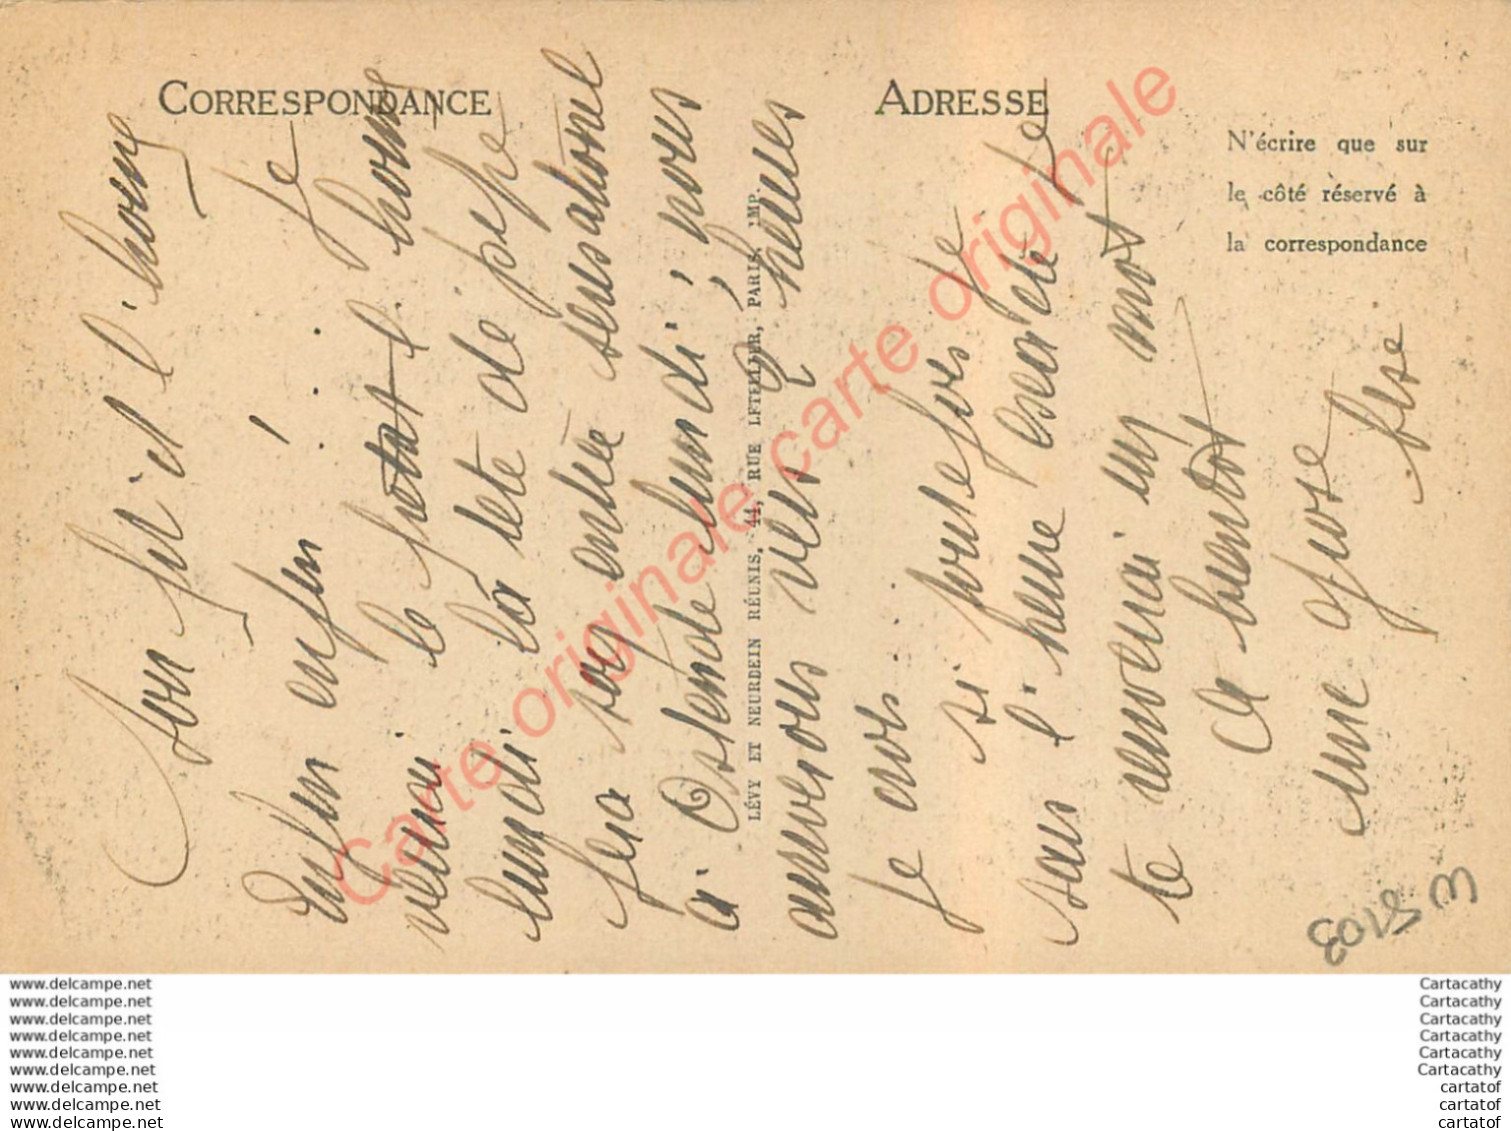 CORRESPONDANCE
ADRESSE
N'écrire que sur
le côté réservé à
la correspondance
LÉVY ET NEURDEIN RÉUNIS, 44, RUE LETELLIER, PARIS. IMP.
Carte originale carte originale
et l'
Enfin enfin ! Je
verrai le l'homme
lundi la tête de pipe
fera son entrée sensationnel
à Ostende lundi, nous
arriverons vers 2 heures
je crois. si toutefois je
sais l'heure exacte je
te renverrai un mot
A bientôt
une grosse bise
www.delcampe.net
www.delcampe.net
www.delcampe.net
www.delcampe.net
www.delcampe.net
www.delcampe.net
www.delcampe.net
www.delcampe.net
www.delcampe.net
Cartacathy
Cartacathy
Cartacathy
Cartacathy
Cartacathy
Cartacathy
cartatof
cartatof
cartatof